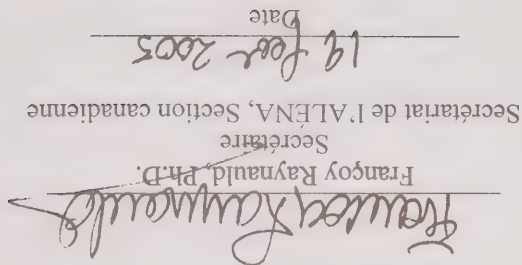 Françoy Raynauld
Françoy Raynauld, Ph.D.
Secrétaire
Secrétariat de l'ALÉNA, Section canadienne
2005
Date